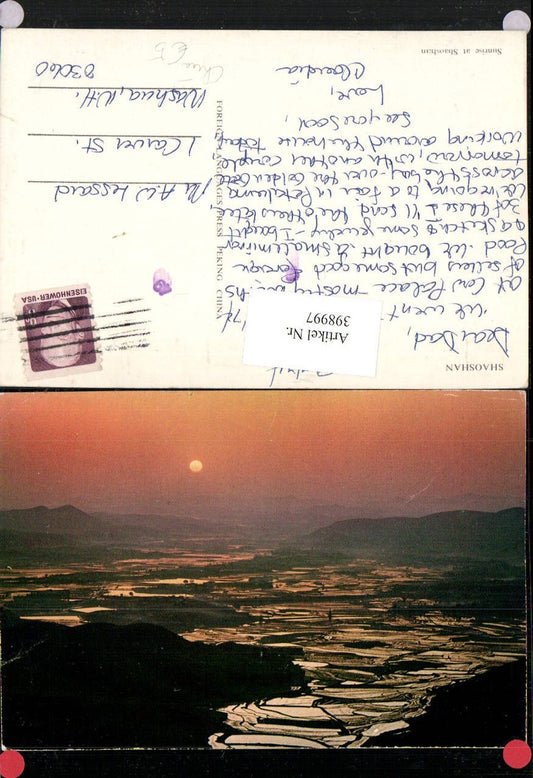 SHAOSHAN
Dear Dad,
We went
at Cow Palace - mostly
of sellers but some good foreign
food. We bought a small mirror
& a sketch & some jewelry - I bought
3 of these I'll send the others later.
We're going to a fair in Petaluma
across the bay - over the Golden Gate
tomorrow, with another couple,
working around the house today,
See you soon,
Love,
Claudia
Sunrise at Shaoshan
FOREIGN LANGUAGES PRESS PEKING CHINA
EISENHOWER·USA
Mr. A.W. Lessard
1 Carver St.
Nashua, N.H.
03060
Artikel Nr.
398997